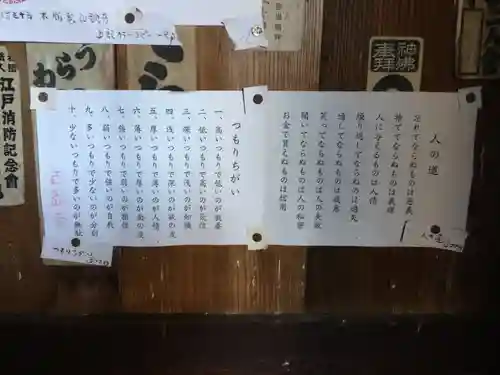 人の道
忘れてならぬものは恩義
捨ててならぬものは義理
人に与えるものは人情
繰り返してならぬものは過失
通してならぬものは我意
笑ってならぬものは人の失敗
聞いてならぬものは人の秘密
お金で買えぬものは信用
つもりちがい
一、高いつもりで低いのが教養
二、低いつもりで高いのが気位
三、深いつもりで浅いのが知識
四、浅いつもりで深いのが欲の皮
五、厚いつもりで薄いのが人情
六、薄いつもりで厚いのが面の皮
七、強いつもりで弱いのが根性
八、弱いつもりで強いのが自我
九、多いつもりで少ないのが分別
十、少ないつもりで多いのが無駄
江戸消防記念會
神佛
拝